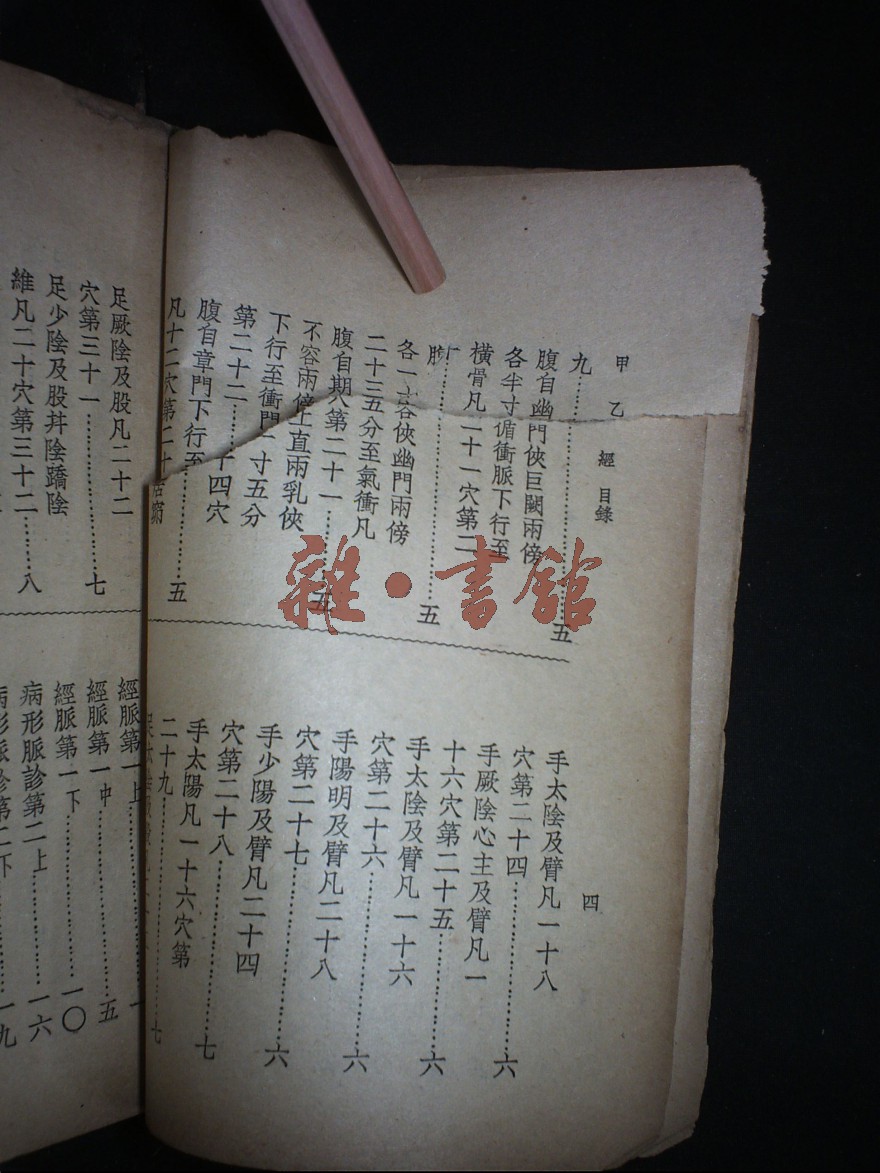 甲乙經 目錄
四
九……五
腹自幽門俠巨闕兩傍
各半寸循衝脈下行至
橫骨凡二十一穴第二
……五
各一 俠幽門兩傍
二十三五分至氣衝凡
腹自期 第二十一……五
不容兩傍上直兩乳俠
下行至衝門一寸五分
第二十二……十四穴
腹自章門下行至
凡十二穴第二十……五
手太陰及臂凡一十八
穴第二十四……六
手厥陰心主及臂凡一
十六穴第二十五……六
手太陰及臂凡一十六
穴第二十六……六
手陽明及臂凡二十八
穴第二十七……六
手少陽及臂凡二十四
穴第二十八……七
手太陽凡一十六穴第
二十九……七
足厥陰及股凡二十二
穴第三十一……七
足少陰及股并陰蹻陰
維凡二十穴第三十二……八
經脈第一上……一
經脈第一中……五
經脈第一下……一〇
病形脈診第二上……一六
病形脈診第二下……一九
雜·書館